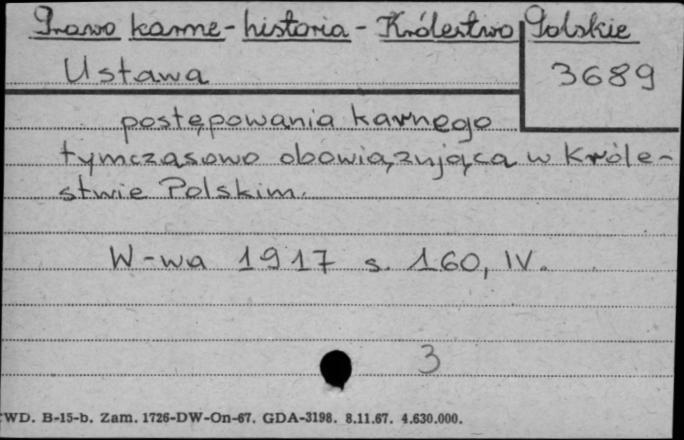 Prawo karne - historia - Królestwo Polskie
Ustawa
3689
postępowania karnego
tymczasowo obowiązująca w Króle-
stwie Polskim.
W-wa 1917 s. 160, IV.
3
WD. B-15-b. Zam. 1726-DW-On-67. GDA-3198. 8.11.67. 4.630.000.